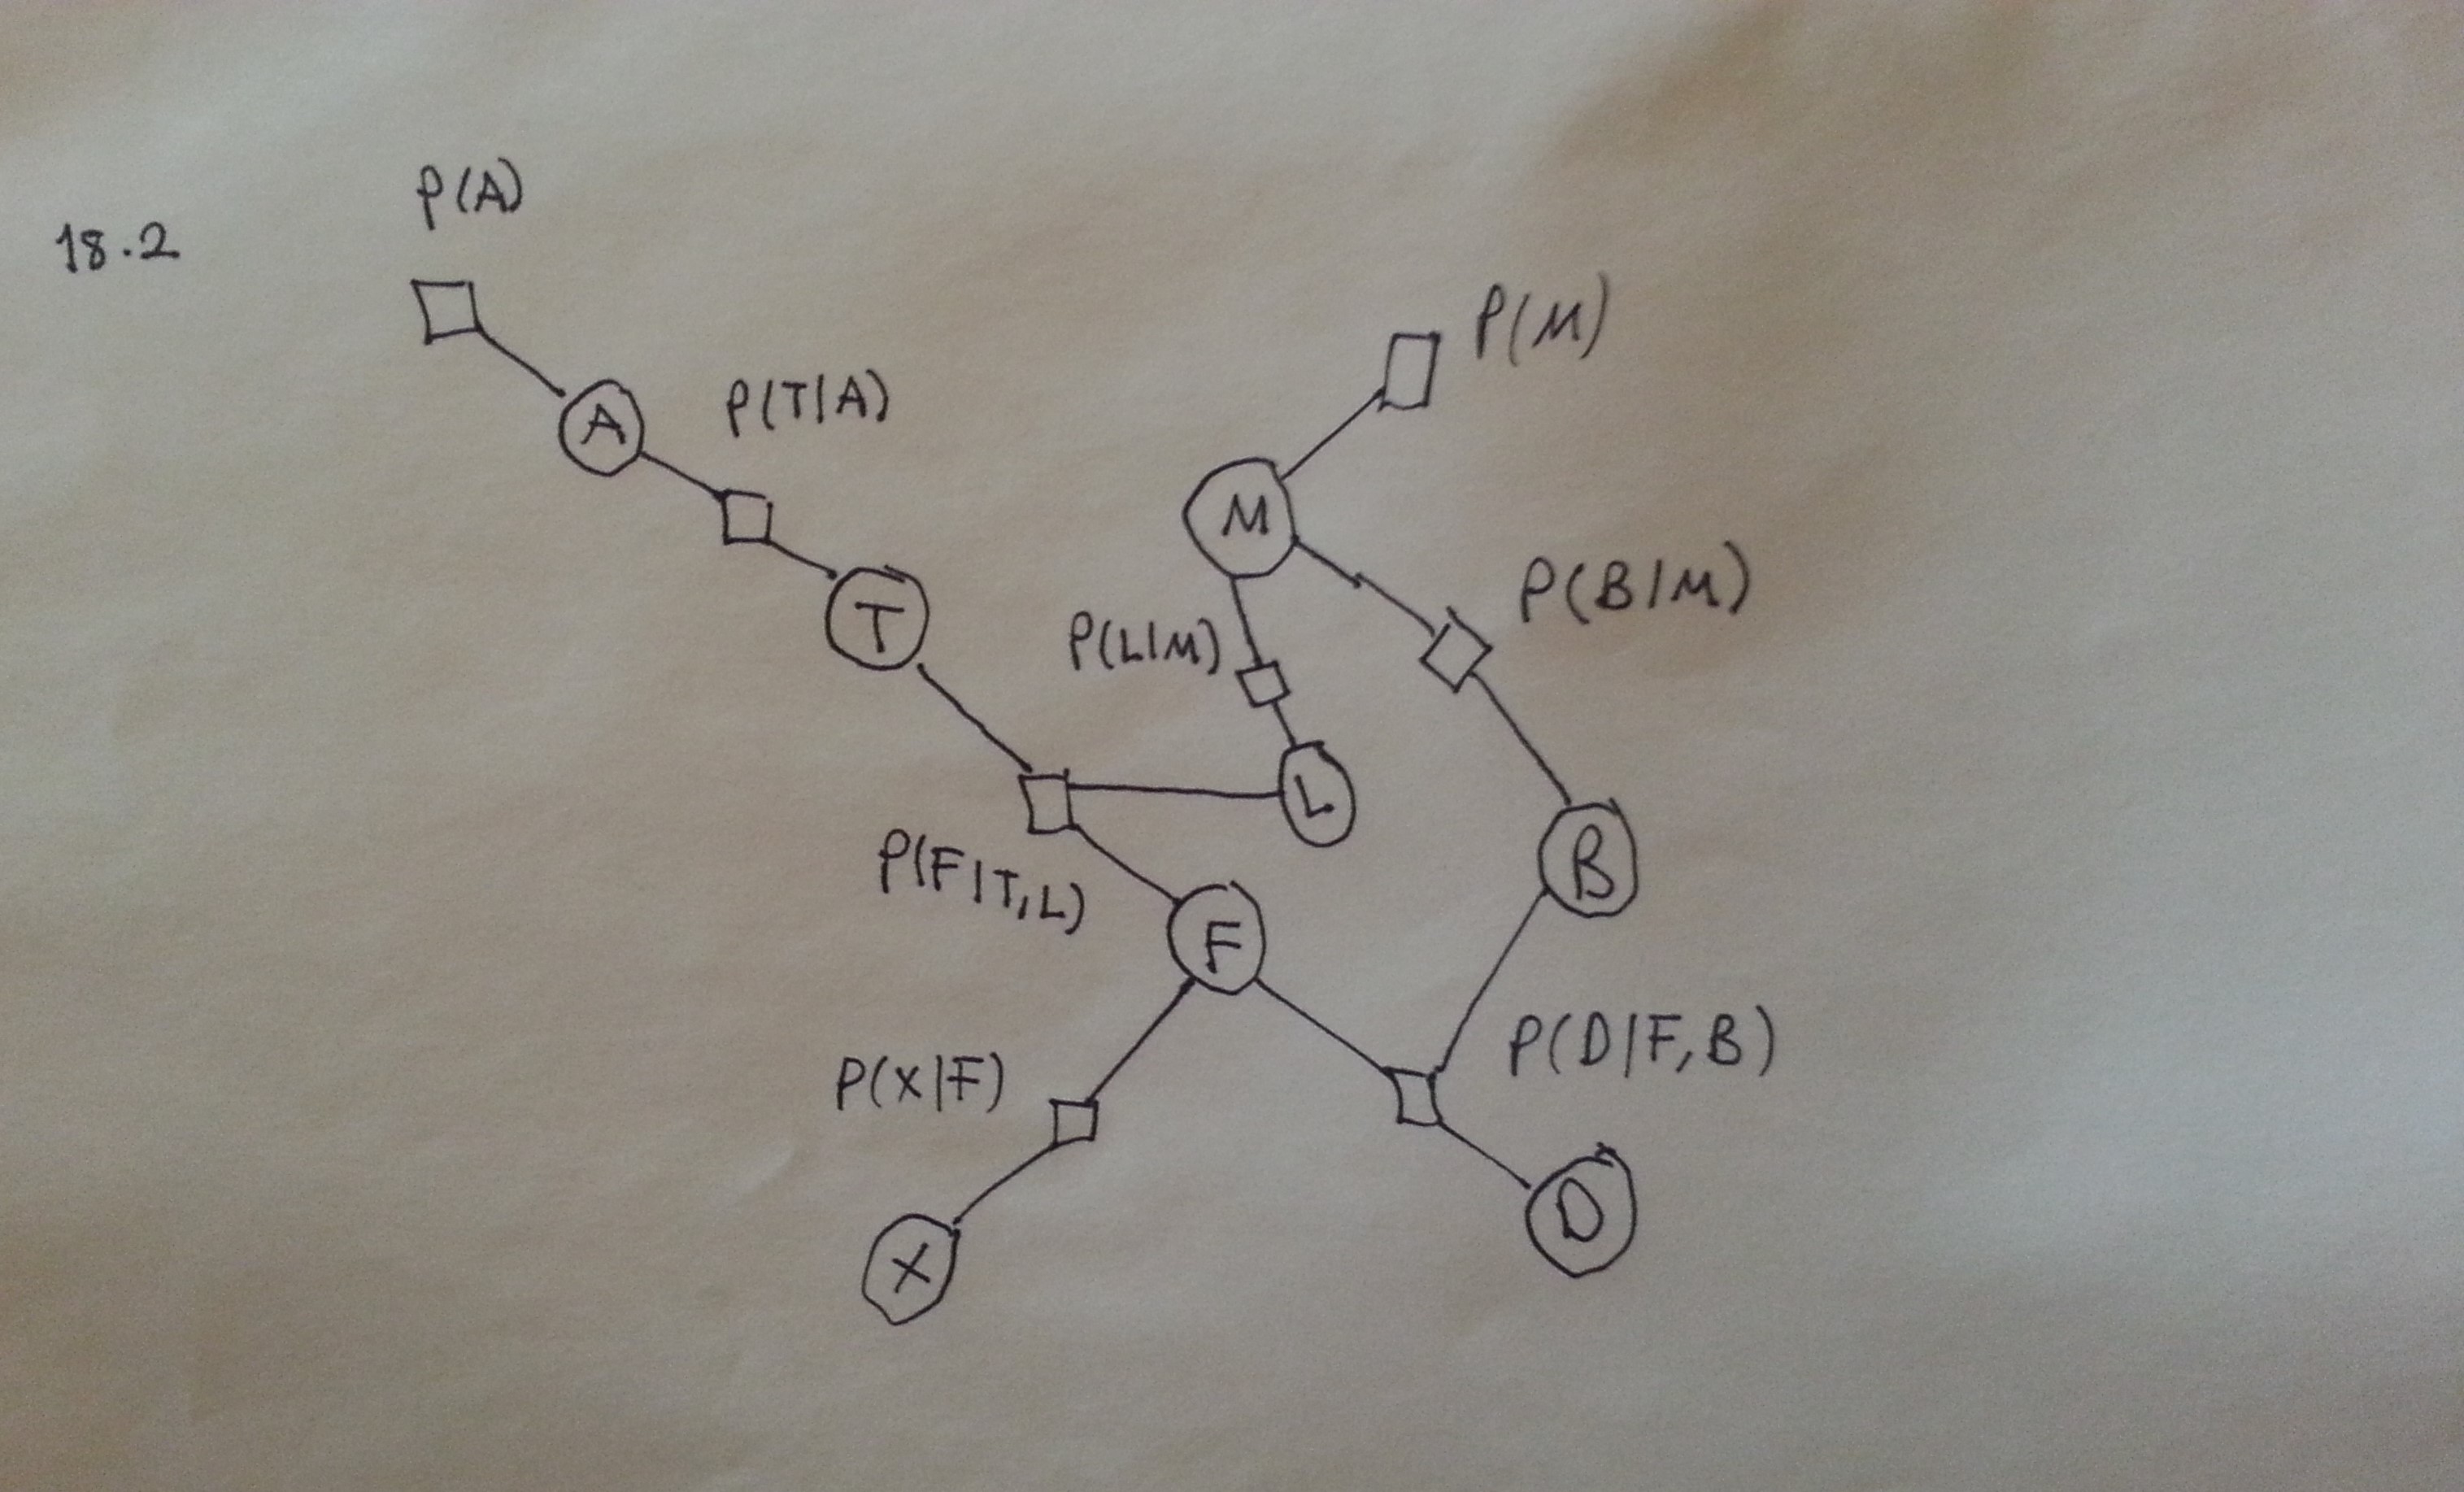 18.2
P(A)
A
P(T|A)
T
P(M)
M
P(L|M)
P(B|M)
L
B
P(F|T,L)
F
P(X|F)
P(D|F,B)
X
D